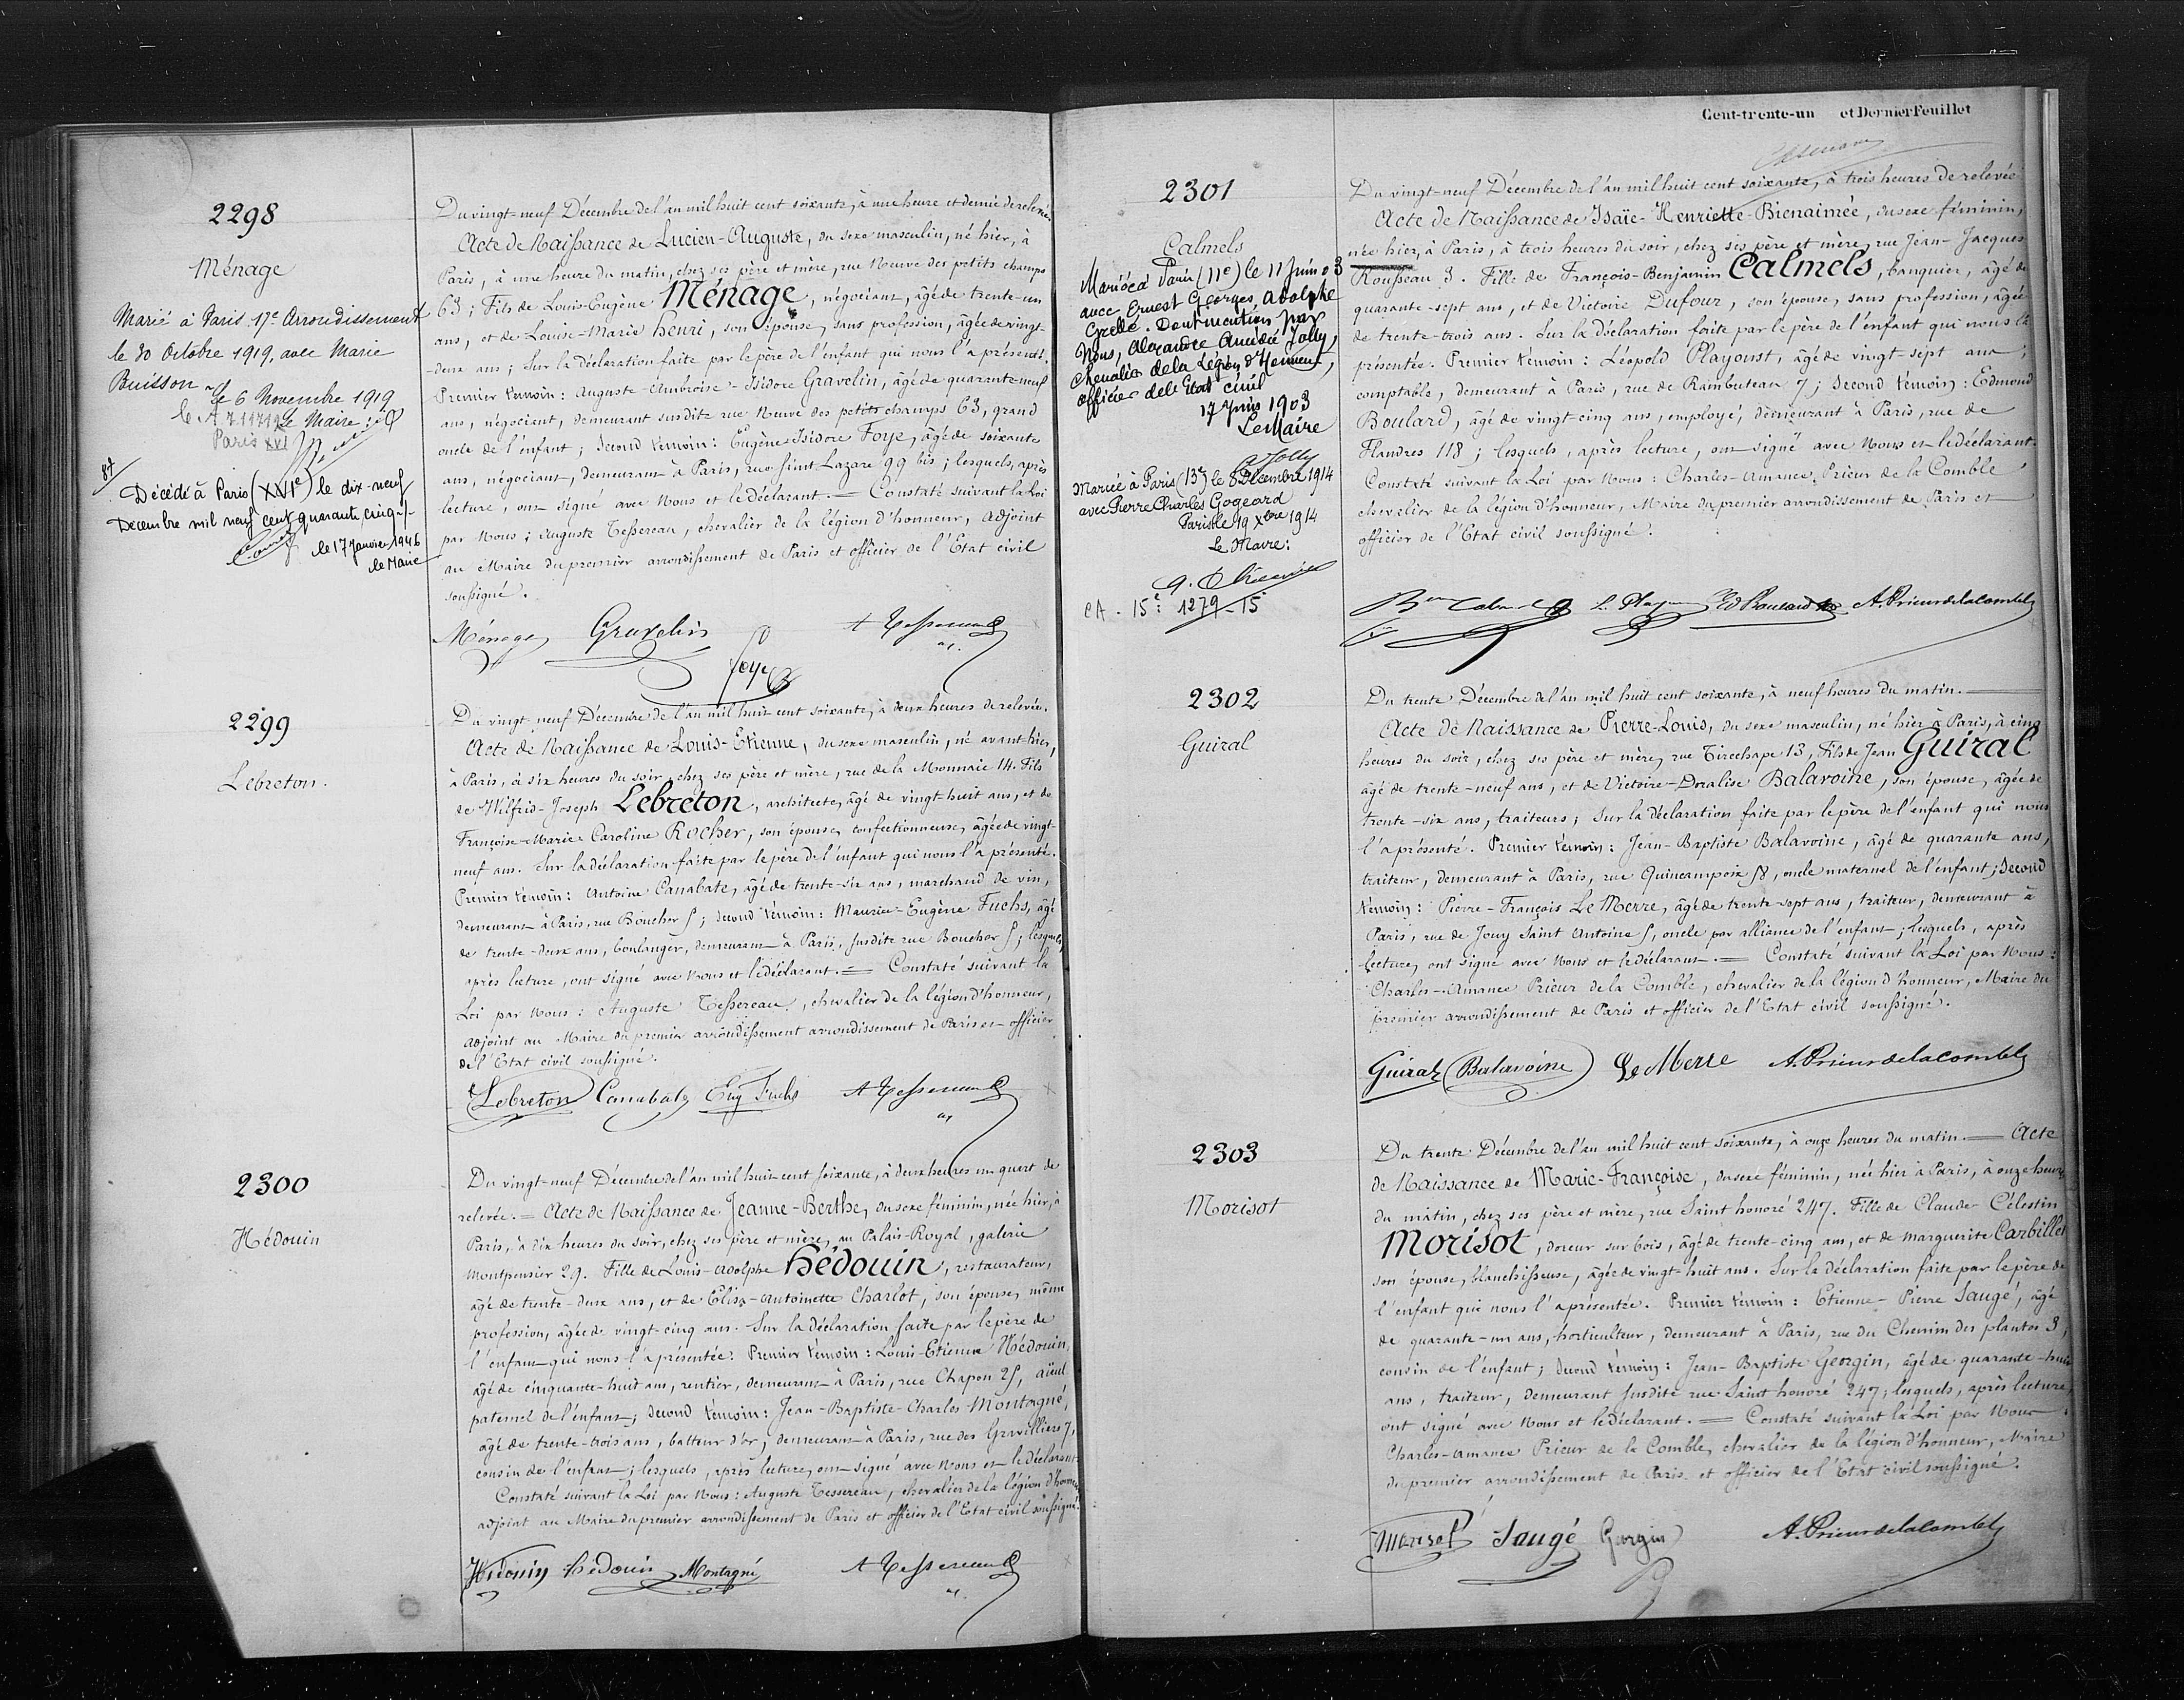 2298
Ménage
Marié à Paris 17e Arrondissement
le 30 Octobre 1919, avec Marie
Buisson le 6 Novembre 1919
Le Maire :
Paris XVI
Décédé à Paris (XVIe) le dix-neuf
Décembre mil neuf cent quarante cinq -/-
le 17 Janvier 1946
le Maire
Du vingt-neuf Décembre de l'an mil huit cent soixante, à une heure et demie de relevée.
Acte de Naissance de Lucien-Auguste, du sexe masculin, né hier, à
Paris, à une heure du matin, chez ses père et mère, rue Neuve des petits champs
63 ; Fils de Louis-Eugène Ménage, négociant, âgé de trente-un
ans, et de Louise-Marie Henri, son épouse, sans profession, âgée de vingt-
deux ans ; Sur la déclaration faite par le père de l'enfant qui nous l'a présenté.
Premier témoin : Auguste-Ambroise-Isidore Gravelin, âgé de quarante-neuf
ans, négociant, demeurant susdite rue Neuve des petits champs 63, grand
oncle de l'enfant ; Second témoin : Eugène Isidore Foye, âgé de soixante
ans, négociant, demeurant à Paris, rue Saint Lazare 99 bis ; lesquels, après
lecture, ont signé avec Nous et le déclarant. = Constaté suivant la Loi
par Nous ; Auguste Tessereau, chevalier de la légion d'honneur, Adjoint
au Maire du premier arrondissement de Paris et officier de l'Etat civil
soussigné.
Ménage Gravelin A Tessereau
Foye
2299
Lebreton.
Du vingt neuf Décembre de l'an mil huit cent soixante, à deux heures de relevée.
Acte de Naissance de Louis-Etienne, du sexe masculin, né avant-hier,
à Paris, à six heures du soir, chez ses père et mère, rue de la Monnaie 14. Fils
de Wilfrid-Joseph Lebreton, architecte, âgé de vingt-huit ans, et de
Françoise-Marie-Caroline Rocher, son épouse, confectionneuse, âgée de vingt-
neuf ans. Sur la déclaration faite par le père de l'enfant qui nous l'a présenté.
Premier témoin : Antoine Canabate, âgé de trente-six ans, marchand de vin,
demeurant à Paris, rue Boucher 5 ; Second témoin : Maurice-Eugène Fuchs, âgé
de trente-deux ans, boulanger, demeurant à Paris, susdite rue Boucher 5 ; lesquels,
après lecture, ont signé avec Nous et le déclarant. = Constaté suivant la
Loi par Nous : Auguste Tessereau, chevalier de la légion d'honneur,
adjoint au Maire du premier arrondissement arrondissement de Paris et officier
de l'Etat civil soussigné.
Lebreton Canabate Eug Fuchs A Tessereau
2300
Hédouin
Du vingt-neuf Décembre de l'an mil huit cent soixante, à deux heures un quart de
relevée. = Acte de Naissance de Jeanne-Berthe, du sexe féminin, née hier, à
Paris, à dix heures du soir, chez ses père et mère, au Palais-Royal, galerie
Montpensier 29. Fille de Louis-Adolphe Hédouin, restaurateur,
âgé de trente-deux ans, et de Elisa-Antoinette Charlot, son épouse, même
profession, âgée de vingt-cinq ans. Sur la déclaration faite par le père de
l'enfant qui nous l'a présentée. Premier témoin : Louis-Etienne Hédouin,
âgé de cinquante-huit ans, rentier, demeurant à Paris, rue Chapon 25, aïeul
paternel de l'enfant ; Second témoin : Jean-Baptiste-Charles Montagné,
âgé de trente-trois ans, batteur d'or, demeurant à Paris, rue des Gravilliers 7,
cousin de l'enfant ; lesquels, après lecture, ont signé avec Nous et le déclarant.
Constaté suivant la Loi par Nous : Auguste Tessereau, chevalier de la légion d'honneur,
adjoint au Maire du premier arrondissement de Paris et officier de l'Etat civil soussigné.
Hédouin hédouin Montagné A Tessereau
Cent-trente-un et Dernier Feuillet
2301
Calmels
Mariée à Paris (11e) le 11 Juin 03
avec Ernest Georges Adolphe
Grelle. Dont mention par
Nous, Alexandre Amédée Jolly,
Chevalier de la Légion d'Honneur,
Officier de l'Etat civil
17 Juin 1903
Le Maire
A Jolly
Mariée à Paris (13e) le 8 Décembre 1914
avec Pierre Charles Gogeard
Paris le 19 Xbre 1914
Le Maire :
CA. 15e : 1279-15
Du vingt-neuf Décembre de l'an mil huit cent soixante, à trois heures de relevée
Acte de Naissance de Isaïe-Henriette-Bienaimée, du sexe féminin,
née hier, à Paris, à trois heures du soir, chez ses père et mère, rue Jean-Jacques
Rousseau 3. Fille de François-Benjamin Calmels, banquier, âgé de
quarante-sept ans, et de Victoire Dufour, son épouse, sans profession, âgée
de trente-trois ans. Sur la déclaration faite par le père de l'enfant qui nous l'a
présentée. Premier témoin : Léopold Playoust, âgé de vingt-sept ans,
comptable, demeurant à Paris, rue de Rambuteau 7 ; Second témoin : Edmond
Boulard, âgé de vingt-cinq ans, employé, demeurant à Paris, rue de
Flandres 118 ; lesquels, après lecture, ont signé avec Nous et le déclarant.
Constaté suivant la Loi par Nous : Charles-Amance Prieur de la Comble
chevalier de la légion d'honneur, Maire du premier arrondissement de Paris et
officier de l'Etat civil soussigné.
Bin Calmels L. Playoust Ed Boulard A. Prieur de la Comble
2302
Guiral
Du trente Décembre de l'an mil huit cent soixante, à neuf heures du matin.
Acte de Naissance de Pierre-Louis, du sexe masculin, né hier à Paris, à cinq
heures du soir, chez ses père et mère, rue Tirechape 13, Fils de Jean Guiral
âgé de trente-neuf ans, et de Victoire-Doralise Balavoine, son épouse, âgée de
trente-six ans, traiteurs ; Sur la déclaration faite par le père de l'enfant qui nous
l'a présenté. Premier témoin : Jean-Baptiste Balavoine, âgé de quarante ans,
traiteur, demeurant à Paris, rue Quincampoix 58, oncle maternel de l'enfant ; Second
témoin : Pierre-François Le Merre, âgé de trente-sept ans, traiteur, demeurant à
Paris, rue de Jouy Saint Antoine 5, oncle par alliance de l'enfant ; lesquels, après
lecture, ont signé avec Nous et le déclarant. = Constaté suivant la Loi par Nous :
Charles-Amance Prieur de la Comble, chevalier de la légion d'honneur, Maire du
premier arrondissement de Paris et officier de l'Etat civil soussigné.
Guiral Balavoine Le Merre A. Prieur de la Comble
2303
Morisot
Du trente Décembre de l'an mil huit cent soixante, à onze heures du matin. = Acte
de Naissance de Marie-Françoise, du sexe féminin, née hier à Paris, à onze heures
du matin, chez ses père et mère, rue Saint honoré 247. Fille de Claude-Célestin
Morisot, doreur sur bois, âgé de trente-cinq ans, et de Marguerite Carbillet
son épouse, blanchisseuse, âgée de vingt-huit ans. Sur la déclaration faite par le père de
l'enfant qui nous l'a présentée. Premier témoin : Etienne-Pierre Saugé, âgé
de quarante-un ans, horticulteur, demeurant à Paris, rue du Chemin des plantes 3,
cousin de l'enfant ; Second témoin : Jean-Baptiste Georgin, âgé de quarante-huit
ans, traiteur, demeurant susdite rue Saint honoré 247 ; lesquels, après lecture,
ont signé avec Nous et le déclarant. = Constaté suivant la Loi par Nous
Charles-Amance Prieur de la Comble, chevalier de la légion d'honneur, Maire
du premier arrondissement de Paris et officier de l'Etat civil soussigné.
Morisot Saugé Georgin A. Prieur de la Comble